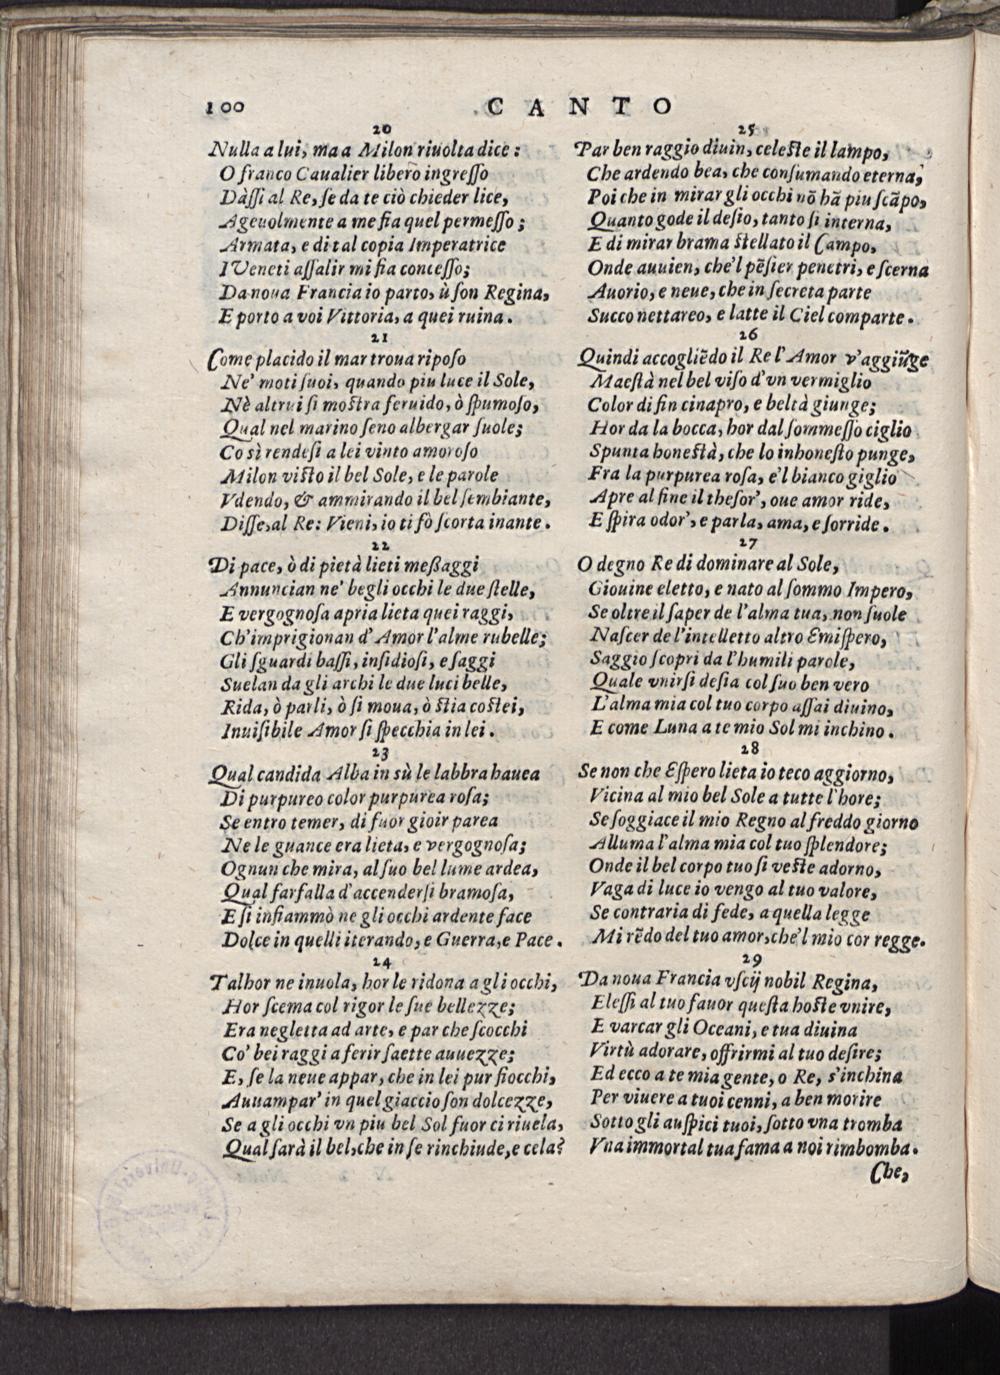 100 CANTO
20
Nulla a lui, ma a Milon riuolta dice:
O franco Caualier libero ingreſſo
Dàſſi al Re, ſe da te ciò chieder lice,
Ageuolmente a me fia quel permeſſo;
Armata, e di tal copia Imperatrice
I Veneti aſſalir mi fia conceſſo;
Da noua Francia io parto, ù ſon Regina,
E porto a voi Vittoria, a quei ruina.
21
Come placido il mar troua ripoſo
Ne' moti ſuoi, quando piu luce il Sole,
Nè altrui ſi moſtra feruido, ò ſpumoſo,
Qual nel marino ſeno albergar ſuole;
Così rendeſi a lei vinto amoroſo
Milon viſto il bel Sole, e le parole
Vdendo, & ammirando il bel ſembiante,
Diſſe, al Re: Vieni, io ti fò ſcorta inante.
22
Di pace, ò di pietà lieti meßaggi
Annuncian ne' begli occhi le due ſtelle,
E vergognoſa apria lieta quei raggi,
Ch'imprigionan d'Amor l'alme rubelle;
Gli ſguardi baſſi, inſidioſi, e ſaggi
Suelan da gli archi le due luci belle,
Rida, ò parli, ò ſi moua, ò ſtia coſtei,
Inuiſibile Amor ſi ſpecchia in lei.
23
Qual candida Alba in sù le labbra hauea
Di purpureo color purpurea roſa;
Se entro temer, di fuor gioir parea
Ne le guance era lieta, e vergognoſa;
Ognun che mira, al ſuo bel lume ardea,
Qual farfalla d'accenderſi bramoſa,
E ſi infiammò ne gli occhi ardente face
Dolce in quelli iterando, e Guerra, e Pace.
24
Talhor ne inuola, hor le ridona a gli occhi,
Hor ſcema col rigor le ſue bellezze;
Era negletta ad arte, e par che ſcocchi
Co' bei raggi a ferir ſaette auuezze;
E, ſe la neue appar, che in lei pur fiocchi,
Auuampar' in quel giaccio ſon dolcezze,
Se a gli occhi vn piu bel Sol fuor ci riuela,
Qual ſarà il bel, che in ſe rinchiude, e cela?
25
Par ben raggio diuin, celeſte il lampo,
Che ardendo bea, che conſumando eterna,
Poi che in mirar gli occhi nō hā piu ſcāpo,
Quanto gode il deſio, tanto ſi interna,
E di mirar brama ſtellato il Campo,
Onde auuien, che'l pēſier penetri, e ſcerna
Auorio, e neue, che in ſecreta parte
Succo nettareo, e latte il Ciel comparte.
26
Quindi accogliēdo il Re l'Amor v'aggiūge
Maeſtà nel bel viſo d'vn vermiglio
Color di fin cinapro, e beltà giunge;
Hor da la bocca, hor dal ſommeſſo ciglio
Spunta honeſtà, che lo inhoneſto punge,
Fra la purpurea roſa, e'l bianco giglio
Apre al fine il theſor', oue amor ride,
E ſpira odor', e parla, ama, e ſorride.
27
O degno Re di dominare al Sole,
Giouine eletto, e nato al ſommo Impero,
Se oltre il ſaper de l'alma tua, non ſuole
Naſcer de l'intelletto altro Emiſpero,
Saggio ſcopri da l'humili parole,
Quale vnirſi deſia col ſuo ben vero
L'alma mia col tuo corpo aſſai diuino,
E come Luna a te mio Sol mi inchino.
28
Se non che Eſpero lieta io teco aggiorno,
Vicina al mio bel Sole a tutte l'hore;
Se ſoggiace il mio Regno al freddo giorno
Alluma l'alma mia col tuo ſplendore;
Onde il bel corpo tuo ſi veſte adorno,
Vaga di luce io vengo al tuo valore,
Se contraria di fede, a quella legge
Mi rēdo del tuo amor, che'l mio cor regge.
29
Da noua Francia vſcij nobil Regina,
Eleſſi al tuo fauor queſta hoſte vnire,
E varcar gli Oceani, e tua diuina
Virtù adorare, offrirmi al tuo deſire;
Ed ecco a te mia gente, o Re, s'inchina
Per viuere a tuoi cenni, a ben morire
Sotto gli auſpici tuoi, ſotto vna tromba
Vna immortal tua fama a noi rimbomba.
Che,